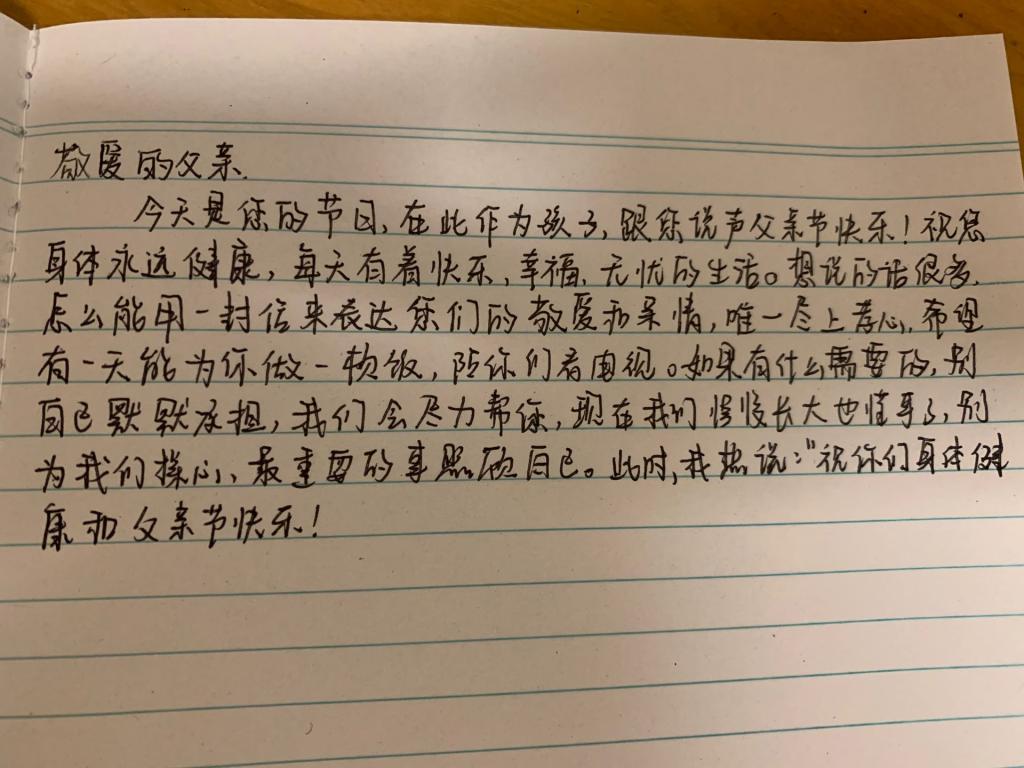 敬爱的父亲.
今天是您的节日,在此作为孩子,跟您说声父亲节快乐!祝您
身体永远健康,每天有着快乐、幸福、无忧的生活。想说的话很多,
怎么能用一封信来表达您们的敬爱和亲情,唯一尽上孝心,希望
有一天能为你做一顿饭,陪你们看电视。如果有什么需要的,别
自己默默承担,我们会尽力帮您,现在我们慢慢长大也懂事了,别
为我们操心、最重要的事照顾自己。此时,我想说:"祝你们身体健
康和父亲节快乐!